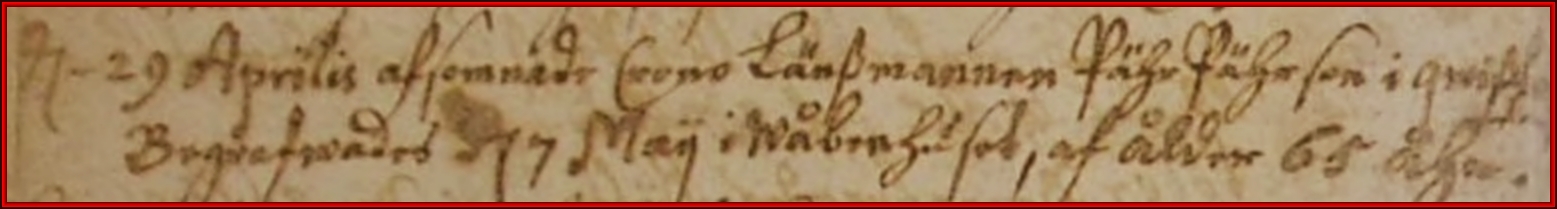 d. 29 Aprilis afsomnade Crono Länßmannen Pähr Pährson i qwist
Begrafwades d 17 Maÿ i Wåkenhuset, af ålder 65 åhr.